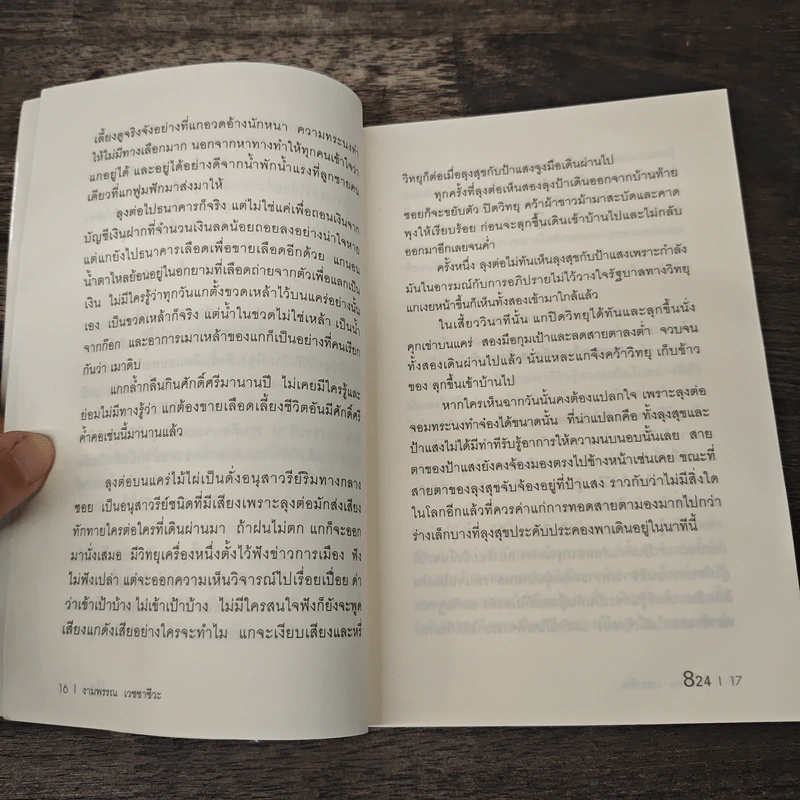 เลี้ยงดูจริงจังอย่างที่แกอวดอ้างนักหนา ความทระนงทำ
ให้ไม่มีทางเลือกมาก นอกจากหาทางทำให้ทุกคนเข้าใจว่า
แกอยู่ได้ และอยู่ได้อย่างดีจากน้ำพักน้ำแรงที่ลูกชายคน
เดียวที่แกฟูมฟักมาส่งมาให้
ลุงต่อไปธนาคารก็จริง แต่ไม่ใช่แค่เพื่อถอนเงินจาก
บัญชีเงินฝากที่จำนวนเงินลดน้อยถอยลงอย่างน่าใจหาย
แต่แกยังไปธนาคารเลือดเพื่อขายเลือดอีกด้วย แกนอน
น้ำตาไหลย้อนอยู่ในอกยามที่เลือดถ่ายจากตัวเพื่อแลกเป็น
เงิน ไม่มีใครรู้ว่าทุกวันแกตั้งขวดเหล้าไว้บนแคร่อย่างนั้น
เอง เป็นขวดเหล้าก็จริง แต่น้ำในขวดไม่ใช่เหล้า เป็นน้ำ
จากก๊อก และอาการเมาเหล้าของแกก็เป็นอย่างที่คนเรียก
กันว่า เมาดิบ
แกกล้ำกลืนกินศักดิ์ศรีมานานปี ไม่เคยมีใครรู้และ
ย่อมไม่มีทางรู้ว่า แกต้องขายเลือดเลี้ยงชีวิตอันมีศักดิ์ศรี
ค้ำคอเช่นนี้มานานแล้ว
ลุงต่อบนแคร่ไม้ไผ่เป็นดั่งอนุสาวรีย์ริมทางกลาง
ซอย เป็นอนุสาวรีย์ชนิดที่มีเสียงเพราะลุงต่อมักส่งเสียง
ทักทายใครต่อใครที่เดินผ่านมา ถ้าฝนไม่ตก แกก็จะออก
มานั่งเสมอ มีวิทยุเครื่องหนึ่งตั้งไว้ฟังข่าวการเมือง ฟัง
ไม่ฟังเปล่า แต่จะออกความเห็นวิจารณ์ไปเรื่อยเปื่อย ด่า
ว่าเข้าเป้าบ้าง ไม่เข้าเป้าบ้าง ไม่มีใครสนใจฟังก็ยังจะพูด
เสียงแกดังเสียอย่างใครจะทำไม แกจะเงียบเสียงและหรี่
16 | งามพรรณ เวชชาชีวะ
วิทยุก็ต่อเมื่อลุงสุขกับป้าแสงจูงมือเดินผ่านไป
ทุกครั้งที่ลุงต่อเห็นสองลุงป้าเดินออกจากบ้านท้าย
ซอยก็จะขยับตัว ปิดวิทยุ คว้าผ้าขาวม้ามาสะบัดและคาด
พุงให้เรียบร้อย ก่อนจะลุกขึ้นเดินเข้าบ้านไปและไม่กลับ
ออกมาอีกเลยจนค่ำ
ครั้งหนึ่ง ลุงต่อไม่ทันเห็นลุงสุขกับป้าแสงเพราะกำลัง
มันในอารมณ์กับการอภิปรายไม่ไว้วางใจรัฐบาลทางวิทยุ
แกเงยหน้าขึ้นก็เห็นทั้งสองเข้ามาใกล้แล้ว
ในเสี้ยววินาทีนั้น แกปิดวิทยุได้ทันและลุกขึ้นนั่ง
คุกเข่าบนแคร่ สองมือกุมเป้าและลดสายตาลงต่ำ จวบจน
ทั้งสองเดินผ่านไปแล้ว นั่นแหละแกจึงคว้าวิทยุ เก็บข้าว
ของ ลุกขึ้นเข้าบ้านไป
หากใครเห็นฉากวันนั้นคงต้องแปลกใจ เพราะลุงต่อ
จอมทระนงทำจ๋องได้ขนาดนั้น ที่น่าแปลกคือ ทั้งลุงสุขและ
ป้าแสงไม่ได้มีท่าทีรับรู้อาการให้ความนบนอบนั้นเลย สาย
ตาของป้าแสงยังคงจ้องมองตรงไปข้างหน้าเช่นเคย ขณะที่
สายตาของลุงสุขจับจ้องอยู่ที่ป้าแสง ราวกับว่าไม่มีสิ่งใด
ในโลกอีกแล้วที่ควรค่าแก่การทอดสายตามองมากไปกว่า
ร่างเล็กบางที่ลุงสุขประคับประคองพาเดินอยู่ในนาทีนี้
824 | 17